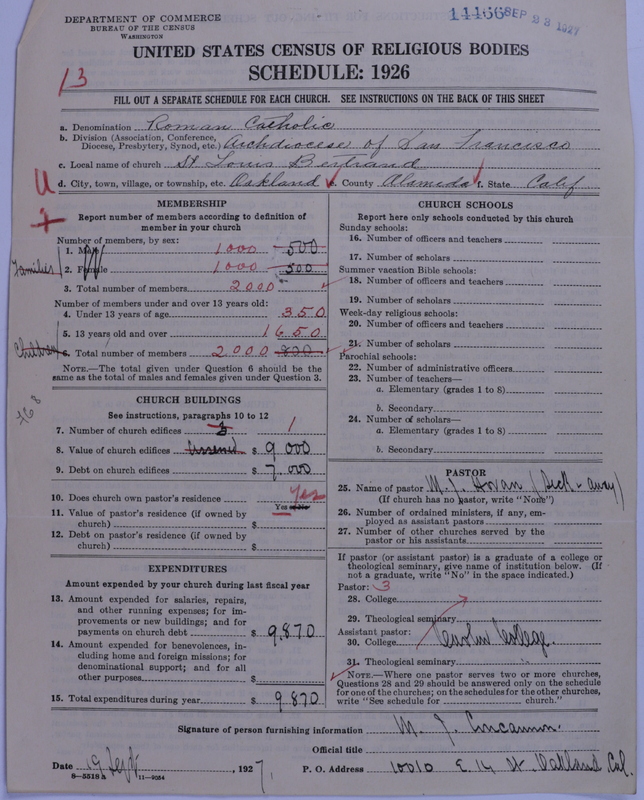 DEPARTMENT OF COMMERCE
BUREAU OF THE CENSUS
WASHINGTON
14166 SEP 23 1927
UNITED STATES CENSUS OF RELIGIOUS BODIES
SCHEDULE: 1926
13
FILL OUT A SEPARATE SCHEDULE FOR EACH CHURCH. SEE INSTRUCTIONS ON THE BACK OF THIS SHEET
a. Denomination Roman Catholic
b. Division (Association, Conference, Diocese, Presbytery, Synod, etc.) Archdiocese of San Francisco
c. Local name of church St Louis Bertrand
U d. City, town, village, or township, etc. Oakland e. County Alameda f. State Calif
MEMBERSHIP
Report number of members according to definition of
member in your church
Number of members, by sex:
1. Male 1000 500
Families 2. Female 1000 300
3. Total number of members 2000
Number of members under and over 13 years old:
4. Under 13 years of age 350
5. 13 years old and over 1650
Children 6. Total number of members 2000 800
NOTE.—The total given under Question 6 should be
same as the total of males and females given under Question 3.
CHURCH BUILDINGS
See instructions, paragraphs 10 to 12
7. Number of church edifices 1
8. Value of church edifices $ 9000
9. Debt on church edifices $ 7000
10. Does church own pastor's residence Yes
Yes or No
11. Value of pastor's residence (if owned by
church) $
12. Debt on pastor's residence (if owned by
church) $
EXPENDITURES
Amount expended by your church during last fiscal year
13. Amount expended for salaries, repairs,
and other running expenses; for im-
provements or new buildings; and for
payments on church debt $ 9,870
14. Amount expended for benevolences, in-
cluding home and foreign missions; for
denominational support; and for all
other purposes $
15. Total expenditures during year $ 9870
CHURCH SCHOOLS
Report here only schools conducted by this church
Sunday schools:
16. Number of officers and teachers
17. Number of scholars
Summer vacation Bible schools:
18. Number of officers and teachers
19. Number of scholars
Week-day religious schools:
20. Number of officers and teachers
21. Number of scholars
Parochial schools:
22. Number of administrative officers
23. Number of teachers—
a. Elementary (grades 1 to 8)
b. Secondary
24. Number of scholars—
a. Elementary (grades 1 to 8)
b. Secondary
PASTOR
25. Name of pastor M. J. (Sick - away)
(If church has no pastor, write "None")
26. Number of ordained ministers, if any, em-
ployed as assistant pastors
27. Number of other churches served by the
pastor or his assistants
If pastor (or assistant pastor) is a graduate of a college or
theological seminary, give name of institution below. (If
not a graduate, write "No" in the space indicated.)
Pastor: 3
28. College
29. Theological seminary
Assistant pastor:
30. College College
31. Theological seminary
NOTE.—Where one pastor serves two or more churches,
Questions 28 and 29 should be answered only on the schedule
for one of the churches; on the schedules for the other churches,
write "See schedule for church."
Signature of person furnishing information M. J.
Official title
Date 19 Sept, 1927. P. O. Address 10010 E. 14 St Oakland Cal.
8—5518 a 11—9054